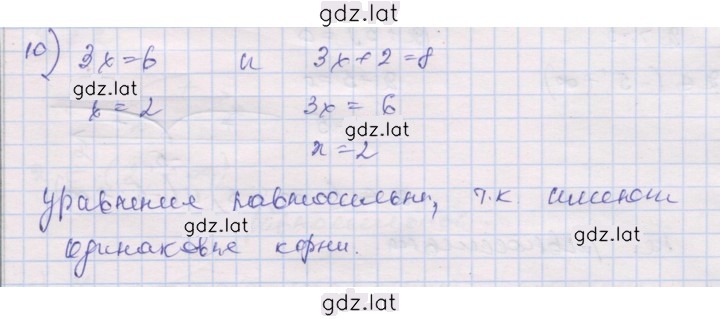 gdz.lat
10) 3x=6 и 3x+2=8
gdz.lat
x=2 3x = 6
gdz.lat
x=2
Уравнения равносильны, т.к имеют
gdz.lat
одинаковые корни.
gdz.lat
gdz.lat